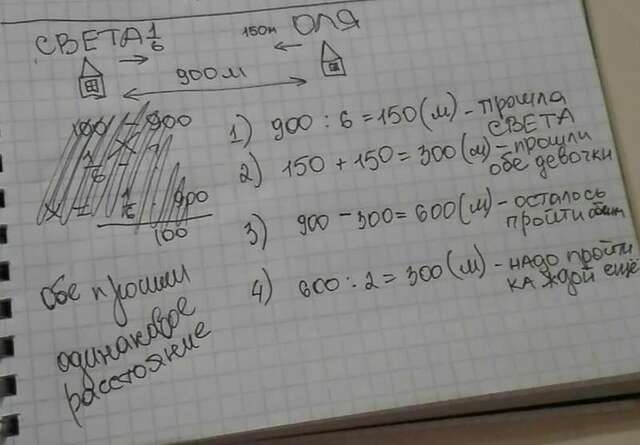 СВЕТА 1/6
150м ОЛЯ
900 м
1) 900 : 6 = 150 (м) - прошла
СВЕТА
2) 150 + 150 = 300 (м) - прошли
обе девочки
3) 900 - 300 = 600 (м) - осталось
пройти
4) 600 : 2 = 300 (м) - НАДО ПРОЙТИ
КАЖДОЙ ЕЩЁ
100 - 900
1/6 - x
x = 1/6 900
100
Обе прошли
одинаковое
расстояние